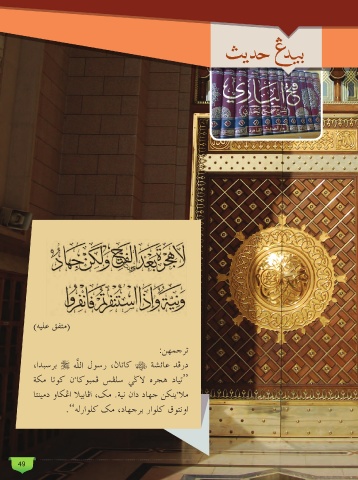 بيدڠ حديث
فتح الباري
لَا هِجْرَةَ بَعْدَ الْفَتْحِ وَلَكِنْ جِهَادٌ
وَنِيَّةٌ وَإِذَا اسْتُنْفِرْتُمْ فَانْفِرُوا
(متفق عليه)
ترجمهن:
درڤد عائشة رضي الله عنها كاتان، رسول الله ﷺ برسبدا،
"تياد هجره لاڬي سلڤس ڤمبوكاءن كوتا مكة
ملاءينكن جهاد دان نية. مک، اڤابيلا اڠكاو دمينتا
اونتوق كلوار برجهاد، مک كلوارله".
49